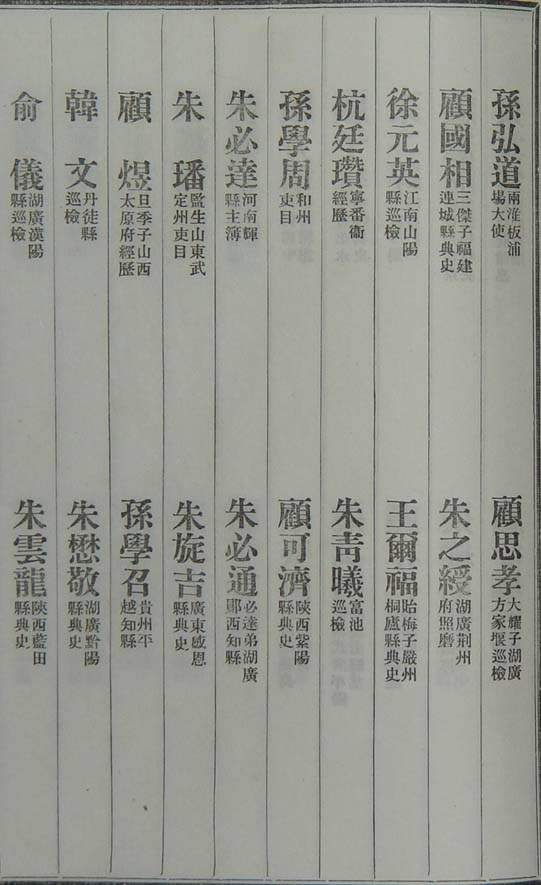 孫弘道 兩淮板浦場大使 顧思孝 大耀子湖廣方家堰巡檢
顧國相 三傑子福建連城縣典史 朱之綬 湖廣荆州府照磨
徐元英 江南山陽縣巡檢 王爾福 貽梅子嚴州桐廬縣典史
杭廷瓚 寧番衞經歷 朱青曦 富池巡檢
孫學周 和州吏目 顧可濟 陝西紫陽縣典史
朱必達 河南輝縣主簿 朱必通 必達弟湖廣鄖西知縣
朱璠 監生山東武定州吏目 朱旋吉 廣東感恩縣典史
顧煜 旦季子山西太原府經歷 孫學召 貴州平越知縣
韓文 丹徒縣巡檢 朱懋敬 湖廣黔陽縣典史
俞儀 湖廣漢陽縣巡檢 朱雲龍 陝西藍田縣典史